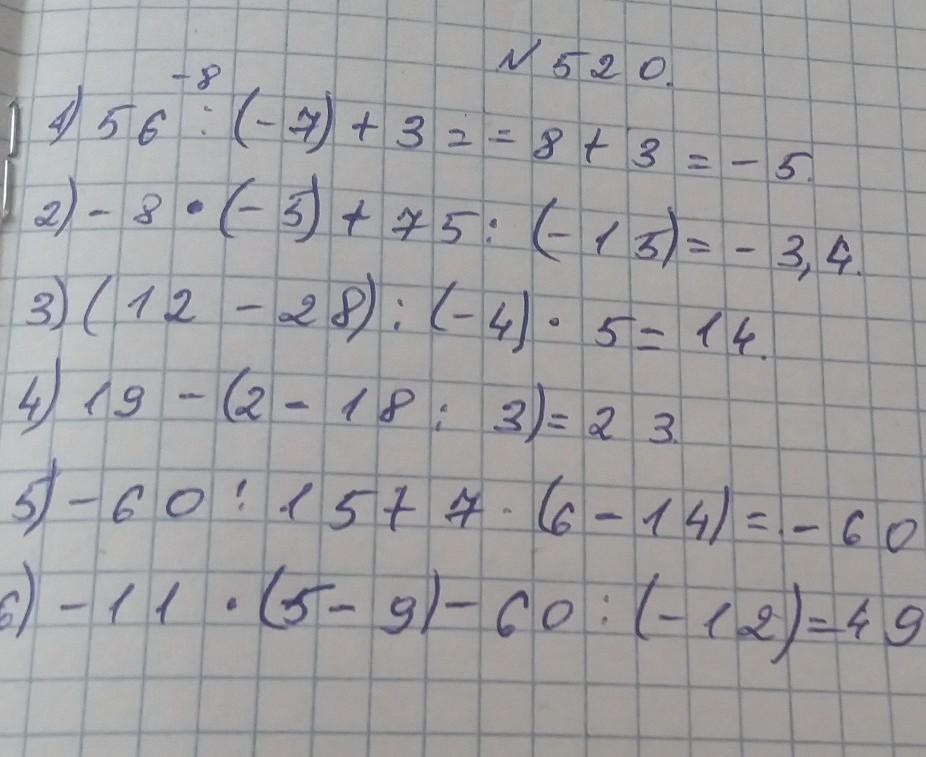 № 520.
-8
1) 56 : (-7) + 3 = = 8 + 3 = - 5.
2) - 8 • (-5) + 75 : (-15) = - 3,4.
3) (12 - 28) : (-4) · 5 = 14.
4) 19 - (2 - 18 : 3) = 23.
5) - 60 : 15 + 7 · (6 - 14) = - 60
6) - 11 • (5 - 9) - 60 : (-12) = 49